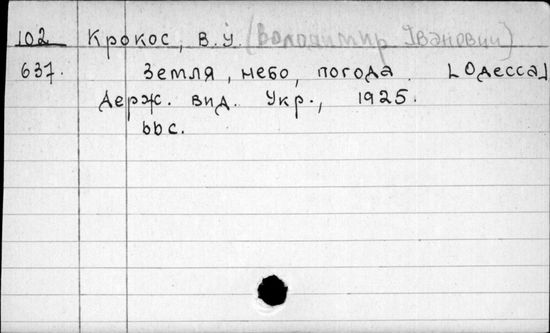 102 Крокос, В.У. (Володимир Іванович)
637. Земля, небо, погода. [Одесса]
Держ. вид. Укр., 1925.
bbc.